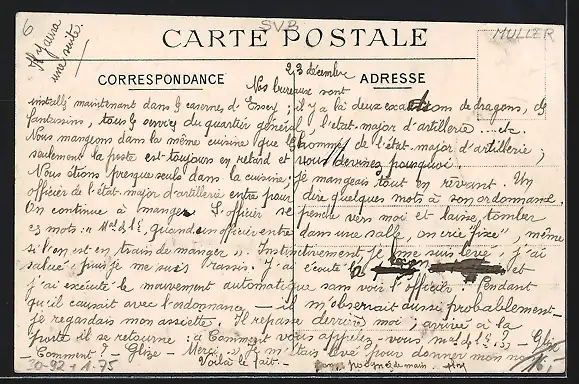 6
SVB
MULLER
Il y aura
une suite.
CARTE POSTALE
CORRESPONDANCE
ADRESSE
23 décembre
Nos bureaux sont
installés maintenant dans les casernes d'Essey ; il y a là deux de dragons, des
fantassins, tous les services du quartier général, l'état-major d'artillerie .... etc.
Nous mangeons dans la même cuisine que les hommes de l'état-major d'artillerie ;
seulement la juste est toujours en retard et vous devinez pourquoi.
Nous étions presque seuls dans la cuisine ; je mangeais tout en rêvant. Un
officier de l'état-major d'artillerie entre pour dire quelques mots à son ordonnance.
On continue à manger. L'officier se penche vers moi et laisse tomber
ces mots : " Mal des L's, quand un officier entre dans une salle, on crie "fixe", même
si l'on est en train de manger ". Instinctivement, je me suis levé, j'ai
salué, puis je me suis rassis. J'ai écouté la leçon et
j'ai exécuté le mouvement automatique sans voir l'officier. Pendant
qu'il causait avec l'ordonnance — il m'observait aussi probablement —
je regardais mon assiette. Il repasse derrière moi ; arrivé à la
porte il se retourne : " Comment vous appelez-vous, mal des L's ? " - Glize
- Comment ? - Glize - Merci. " Je m'étais levé pour donner mon nom
Voilà le fait.
30-92 + 1-75